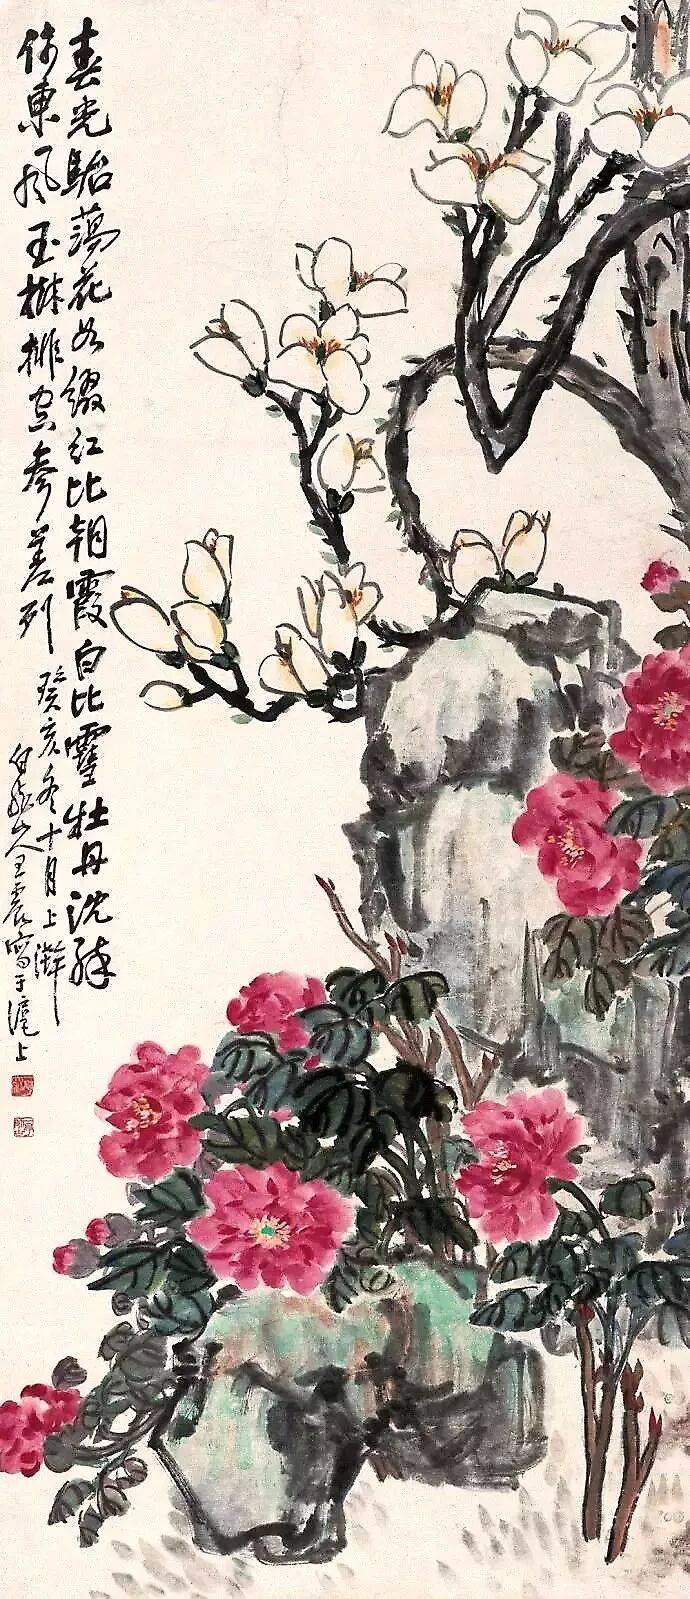 春光駘蕩花如綴紅比朝霞白比雪牡丹沈醉
倚東風玉樹排空參差列
癸亥冬十月上澣
白龍山人王震寫于滬上